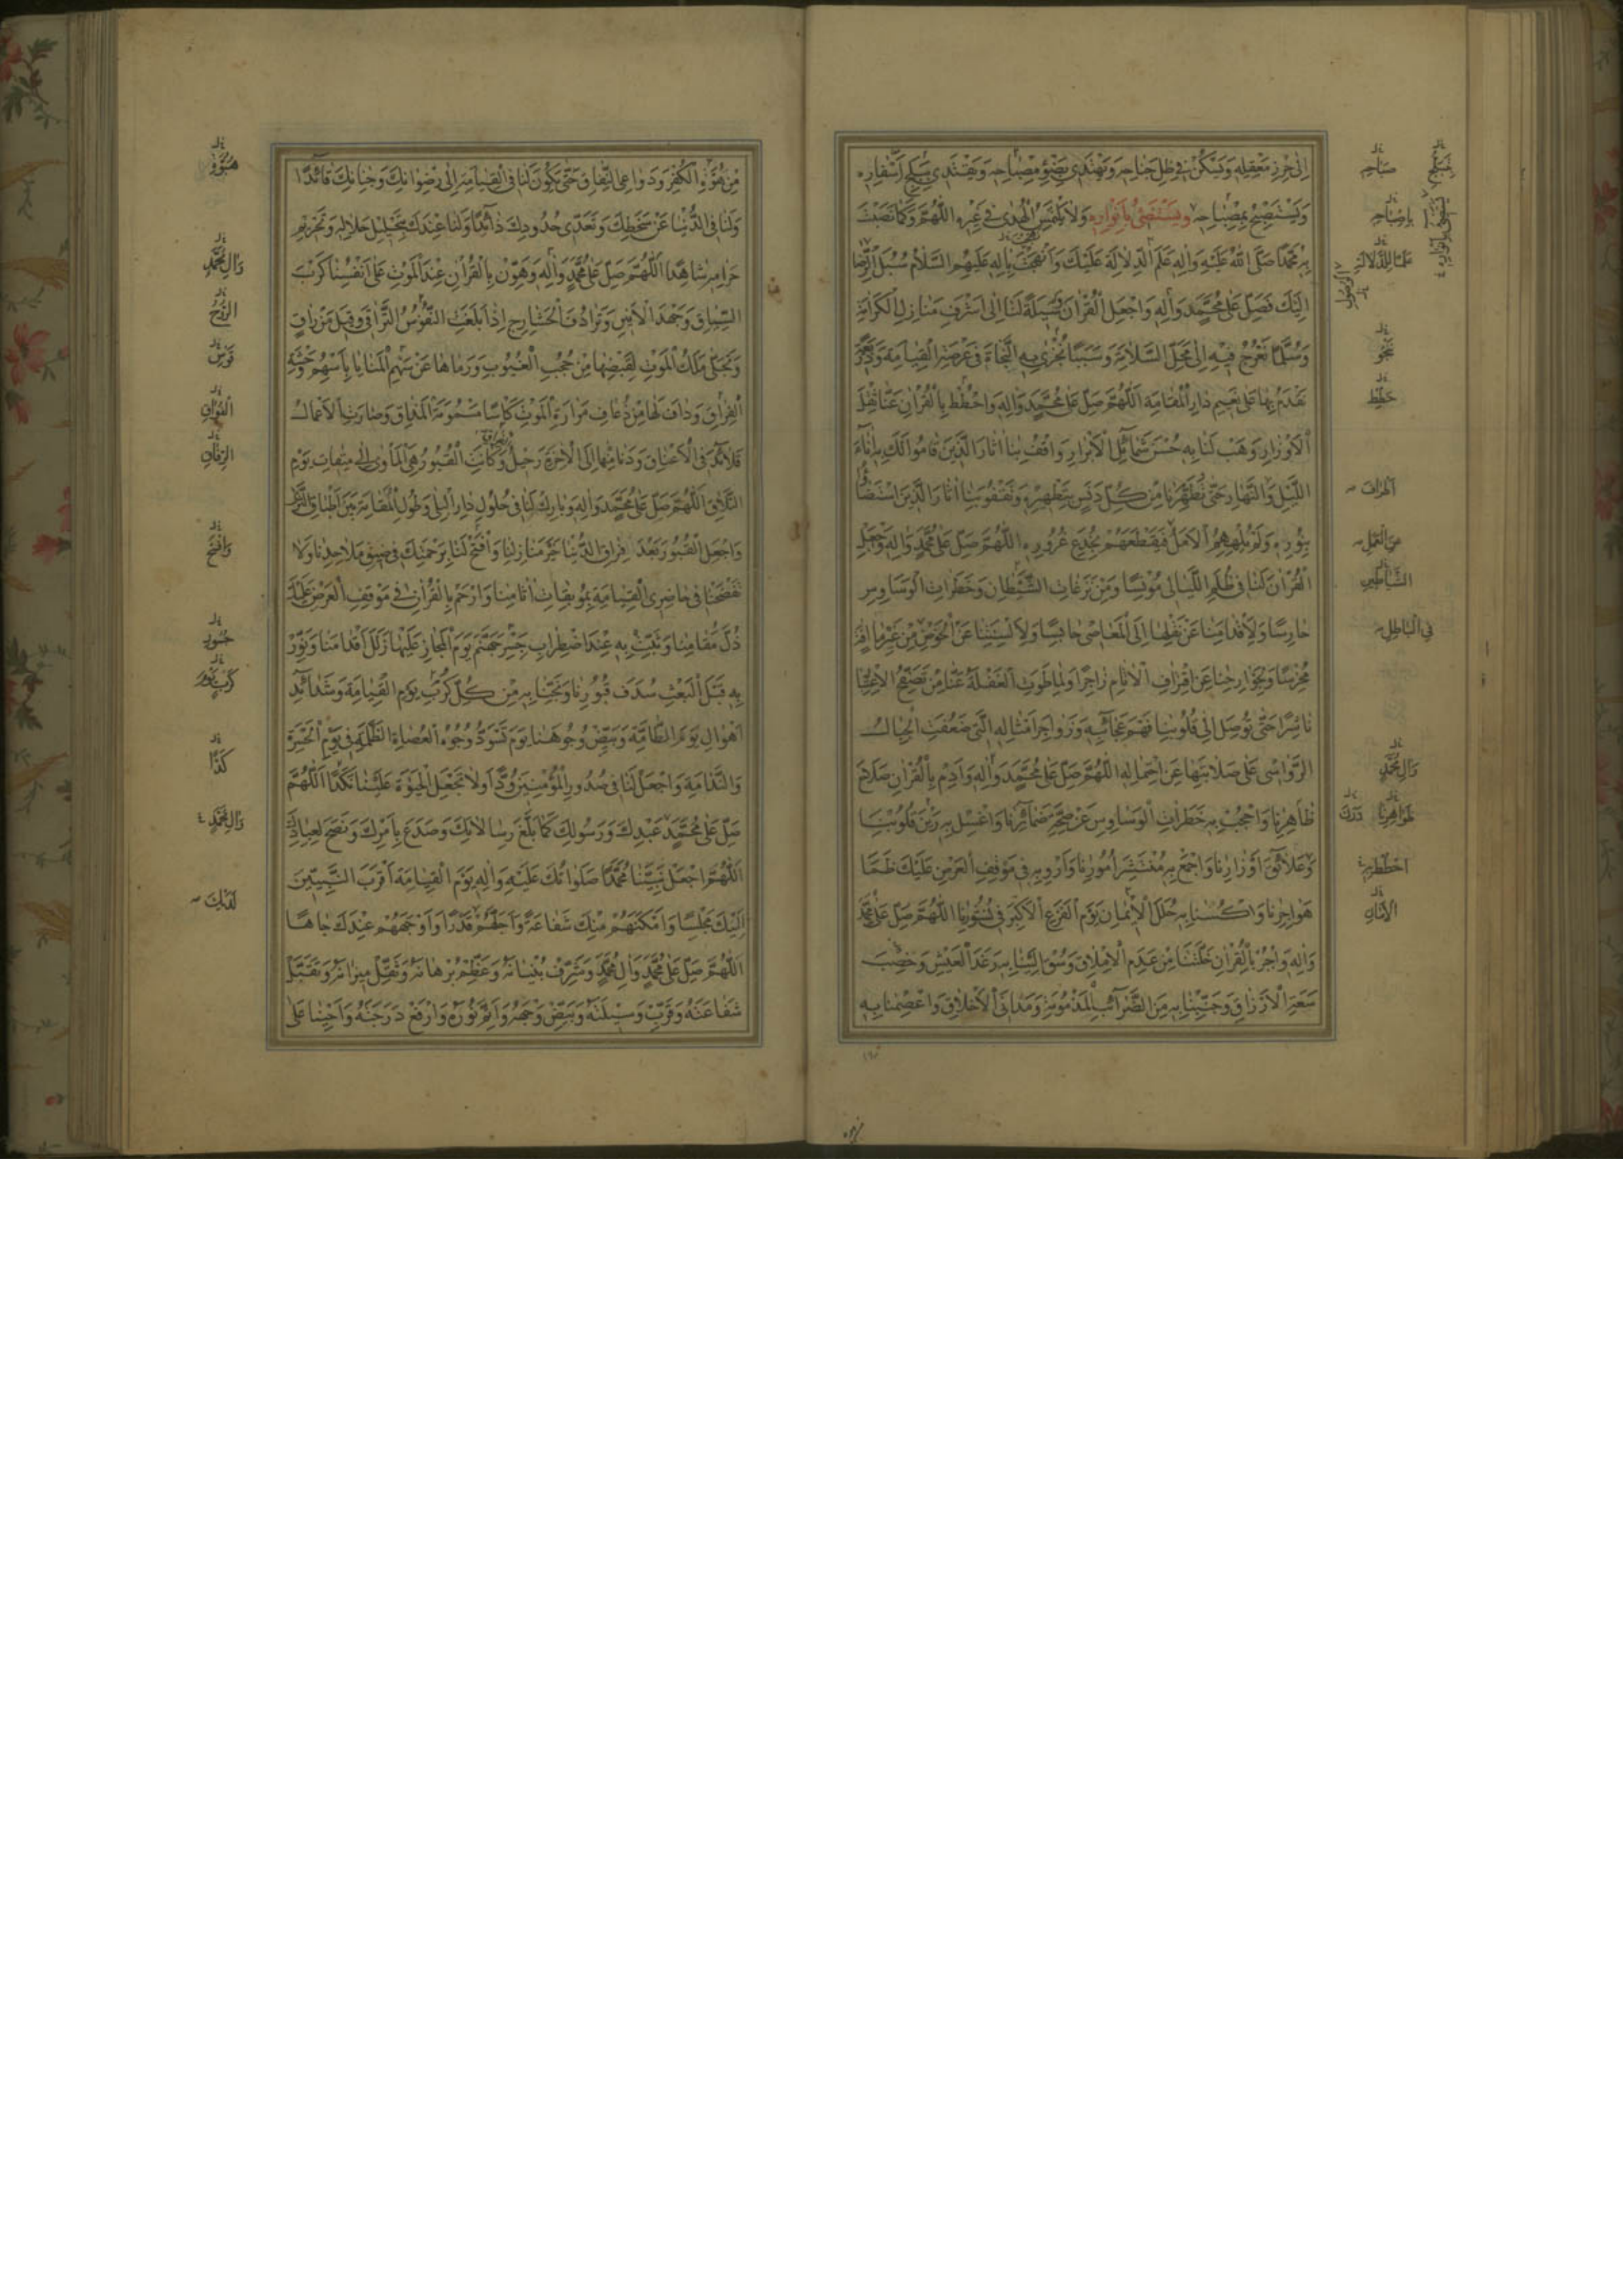 إِلىٰ حِرْزِ مَعْقِلِهِ وَيَسْكُنُ فِي ظِلِّ جَنَاحِهِ وَيَهْتَدِي بِضَوْءِ مِصْبَاحِهِ وَيَقْتَدِي بِتَبَلُّجِ أَسْفَارِهِ
وَيَسْتَصْبِحُ بِمِصْبَاحِهِ وَيَسْتَضِئُ بِأَنْوَارِهِ وَلَا يَلْتَمِسُ الْهُدَى فِي غَيْرِهِ اللَّهُمَّ وَكَمَا نَصَبْتَ
بِهِ مُحَمَّدًا صَلَّى اللهُ عَلَيْهِ وَآلِهِ عَلَمَ الدِّلَالَةِ عَلَيْكَ وَأَنْهَجْتَ بِآلِهِ عَلَيْهِمُ السَّلَامُ سُبُلَ الرِّضَا
إِلَيْكَ فَصَلِّ عَلَى مُحَمَّدٍ وَآلِهِ وَاجْعَلِ الْقُرْآنَ وَسِيلَةً لَنَا إِلَى أَشْرَفِ مَنَازِلِ الْكَرَامَةِ
وَسُلَّمًا نَعْرُجُ فِيهِ إِلَى مَحَلِّ السَّلَامَةِ وَسَبَبًا نُجْزَى بِهِ النَّجَاةَ فِي عَرْصَةِ الْقِيَامَةِ وَذَرِيعَةً
نَقْدَمُ بِهَا عَلَى نَعِيمِ دَارِ الْمُقَامَةِ اللَّهُمَّ صَلِّ عَلَى مُحَمَّدٍ وَآلِهِ وَاحْطُطْ بِالْقُرْآنِ عَنَّا ثِقْلَ
الْأَوْزَارِ وَهَبْ لَنَا بِهِ حُسْنَ شَمَائِلِ الْأَبْرَارِ وَاقْفُ بِنَا آثَارَ الَّذِينَ قَامُوا لَكَ بِهِ آنَاءَ
اللَّيْلِ وَالنَّهَارِ حَتَّى تُطَهِّرَنَا مِنْ كُلِّ دَنَسٍ بِتَطْهِيرِهِ وَتَقْفُوَ بِنَا آثَارَ الَّذِينَ اسْتَضَاؤُا
بِنُورِهِ وَلَمْ يُلْهِهِمُ الْأَمَلُ فَيَقْطَعَهُمْ بِخُدَعِ غُرُورِهِ اللَّهُمَّ صَلِّ عَلَى مُحَمَّدٍ وَآلِهِ وَاجْعَلِ
الْقُرْآنَ لَنَا فِي ظُلَمِ اللَّيَالِي مُونِسًا وَمِنْ نَزَغَاتِ الشَّيْطَانِ وَخَطَرَاتِ الْوَسَاوِسِ
حَارِسًا وَلِأَقْدَامِنَا عَنْ نَقْلِهَا إِلَى الْمَعَاصِي حَابِسًا وَلِأَلْسِنَتِنَا عَنِ الْخَوْضِ مِنْ غَيْرِ مَا آفَةٍ
مُخْرِسًا وَلِجَوَارِحِنَا عَنِ اقْتِرَافِ الْآثَامِ زَاجِرًا وَلِمَا طَوَتِ الْغَفْلَةُ عَنَّا مِنْ تَصَفُّحِ الْاِعْتِبَارِ
نَاشِرًا حَتَّى تُوصِلَ إِلَى قُلُوبِنَا فَهْمَ عَجَائِبِهِ وَزَوَاجِرَ أَمْثَالِهِ الَّتِي ضَعُفَتِ الْجِبَالُ
الرَّوَاسِي عَلَى صَلَابَتِهَا عَنِ احْتِمَالِهِ اللَّهُمَّ صَلِّ عَلَى مُحَمَّدٍ وَآلِهِ وَأَدِمْ بِالْقُرْآنِ صَلَاحَ
ظَاهِرِنَا وَاحْجُبْ بِهِ خَطَرَاتِ الْوَسَاوِسِ عَنْ صِحَّةِ ضَمَائِرِنَا وَاغْسِلْ بِهِ رَيْنَ قُلُوبِنَا
وَعَلَائِقَ أَوْزَارِنَا وَاجْمَعْ بِهِ مُنْتَشِرَ أُمُورِنَا وَأَرْوِ بِهِ فِي مَوْقِفِ الْعَرْضِ عَلَيْكَ ظَمَأَ
هَوَاجِرِنَا وَاكْسُنَا بِهِ حُلَلَ الْإِيمَانِ يَوْمَ الْفَزَعِ الْأَكْبَرِ فِي نُشُورِنَا اللَّهُمَّ صَلِّ عَلَى مُحَمَّدٍ
وَآلِهِ وَاجْبُرْ بِالْقُرْآنِ خَلَّتَنَا مِنْ عَدَمِ الْإِمْلَاقِ وَسُقْ إِلَيْنَا بِهِ رَغَدَ الْعَيْشِ وَخِصْبَ
سَعَةِ الْأَرْزَاقِ وَجَنِّبْنَا بِهِ مِنَ الضَّرَائِبِ الْمَذْمُومَةِ وَمَدَانِيَ الْأَخْلَاقِ وَاعْصِمْنَا بِهِ
صَبَاحِهِ
بِإِصْبَاحِهِ
نَنْجُو
الشَّيَاطِينِ
فِي الْبَاطِلِ
وَآلِ مُحَمَّدٍ
ظَوَاهِرِنَا
دَرَنَ
الْأَمَانِ
مِنْ هُوَّةِ الْكُفْرِ وَدَوَاعِي النِّفَاقِ حَتَّى يَكُونَ لَنَا فِي الْقِيَامَةِ إِلَى رِضْوَانِكَ وَجِنَانِكَ قَائِدًا
وَلَنَا فِي الدُّنْيَا عَنْ سَخَطِكَ وَتَعَدِّي حُدُودِكَ ذَائِدًا وَلَنَا عِنْدَكَ بِتَحْلِيلِ حَلَالِهِ وَتَحْرِيمِ
حَرَامِهِ شَاهِدًا اللَّهُمَّ صَلِّ عَلَى مُحَمَّدٍ وَآلِهِ وَهَوِّنْ بِالْقُرْآنِ عِنْدَ الْمَوْتِ عَلَى أَنْفُسِنَا كَرْبَ
السِّيَاقِ وَجَهْدَ الْأَنِينِ وَتَرَادُفَ الْحَشَارِجِ إِذَا بَلَغَتِ النُّفُوسُ التَّرَاقِيَ وَقِيلَ مَنْ رَاقٍ
وَتَجَلَّى مَلَكُ الْمَوْتِ لِقَبْضِهَا مِنْ حُجُبِ الْغُيُوبِ وَرَمَاهَا عَنْ سَهْمِ الْمَنَايَا بِأَسْهُمِ وَحْشَةِ
الْفِرَاقِ وَدَافَ لَهَا مِنْ ذُعَافِ مَرَارَةِ الْمَوْتِ كَأْسًا مَسْمُومَةَ الْمَذَاقِ وَصَارَتِ الْأَعْمَالُ
قَلَائِدَ فِي الْأَعْنَاقِ وَدَنَا مِنَّا إِلَى الْآخِرَةِ رَحِيلٌ وَكَانَتِ الْقُبُورُ هِيَ الْمَأْوَى إِلَى مِيقَاتِ يَوْمِ
التَّلَاقِ اللَّهُمَّ صَلِّ عَلَى مُحَمَّدٍ وَآلِهِ وَبَارِكْ لَنَا فِي حُلُولِ دَارِ الْبِلَى وَطُولِ الْمُقَامَةِ بَيْنَ أَطْبَاقِ الثَّرَى
وَاجْعَلِ الْقُبُورَ بَعْدَ فِرَاقِ الدُّنْيَا خَيْرَ مَنَازِلِنَا وَافْتَحْ لَنَا بِرَحْمَتِكَ فِي ضِيقِ مَلَاحِدِنَا وَلَا
تَفْضَحْنَا فِي حَاضِرِي الْقِيَامَةِ بِمُوبِقَاتِ آثَامِنَا وَارْحَمْ بِالْقُرْآنِ فِي مَوْقِفِ الْعَرْضِ عَلَيْكَ
ذُلَّ مَقَامِنَا وَثَبِّتْ بِهِ عِنْدَ اضْطِرَابِ جِسْرِ جَهَنَّمَ يَوْمَ الْمَجَازِ عَلَيْهَا زَلَلَ أَقْدَامِنَا وَنَوِّرْ
بِهِ قَبْلَ الْبَعْثِ سُدَفَ قُبُورِنَا وَنَجِّنَا بِهِ مِنْ كُلِّ كَرْبِ يَوْمِ الْقِيَامَةِ وَشَدَائِدِ
أَهْوَالِ يَوْمِ الطَّامَّةِ وَبَيِّضْ وُجُوهَنَا يَوْمَ تَسْوَدُّ وُجُوهُ الْعُصَاةِ الظَّلَمَةِ فِي يَوْمِ الْحَسْرَةِ
وَالنَّدَامَةِ وَاجْعَلْ لَنَا فِي صُدُورِ الْمُؤْمِنِينَ وُدًّا وَلَا تَجْعَلِ الْحَيٰوةَ عَلَيْنَا نَكَدًا اللَّهُمَّ
صَلِّ عَلَى مُحَمَّدٍ عَبْدِكَ وَرَسُولِكَ كَمَا بَلَّغَ رِسَالَاتِكَ وَصَدَعَ بِأَمْرِكَ وَنَصَحَ لِعِبَادِكَ
اللَّهُمَّ اجْعَلْ نَبِيَّنَا مُحَمَّدًا صَلَوَاتُكَ عَلَيْهِ وَآلِهِ يَوْمَ الْقِيَامَةِ أَقْرَبَ النَّبِيِّينَ
إِلَيْكَ مَجْلِسًا وَأَمْكَنَهُمْ مِنْكَ شَفَاعَةً وَأَجَلَّهُمْ قَدْرًا وَأَوْجَهَهُمْ عِنْدَكَ جَاهًا
اللَّهُمَّ صَلِّ عَلَى مُحَمَّدٍ وَآلِ مُحَمَّدٍ وَشَرِّفْ بُنْيَانَهُ وَعَظِّمْ بُرْهَانَهُ وَثَقِّلْ مِيزَانَهُ وَتَقَبَّلْ
شَفَاعَتَهُ وَقَرِّبْ وَسِيلَتَهُ وَبَيِّضْ وَجْهَهُ وَأَتِمَّ نُورَهُ وَارْفَعْ دَرَجَتَهُ وَأَحْيِنَا عَلَى
وَآلِ مُحَمَّدٍ
الرُّوحُ
قَوْسِ
وَافْسَحْ
جُسُورِ
وَآلِ مُحَمَّدٍ